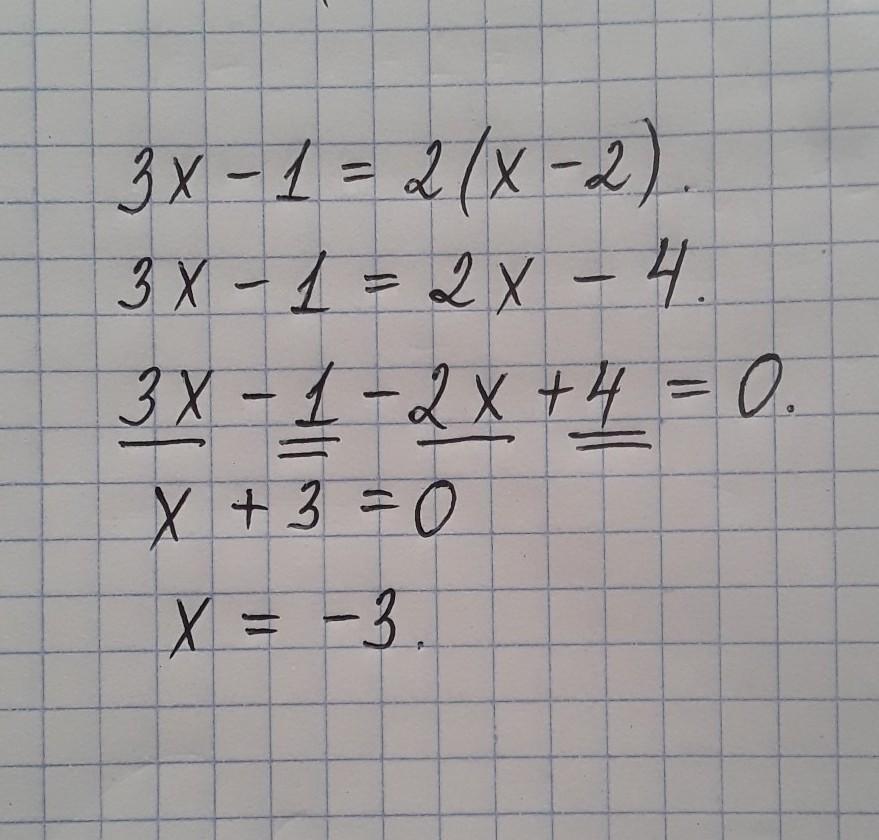 3x - 1 = 2(x - 2).
3x - 1 = 2x - 4.
3x - 1 - 2x + 4 = 0.
x + 3 = 0
x = -3.